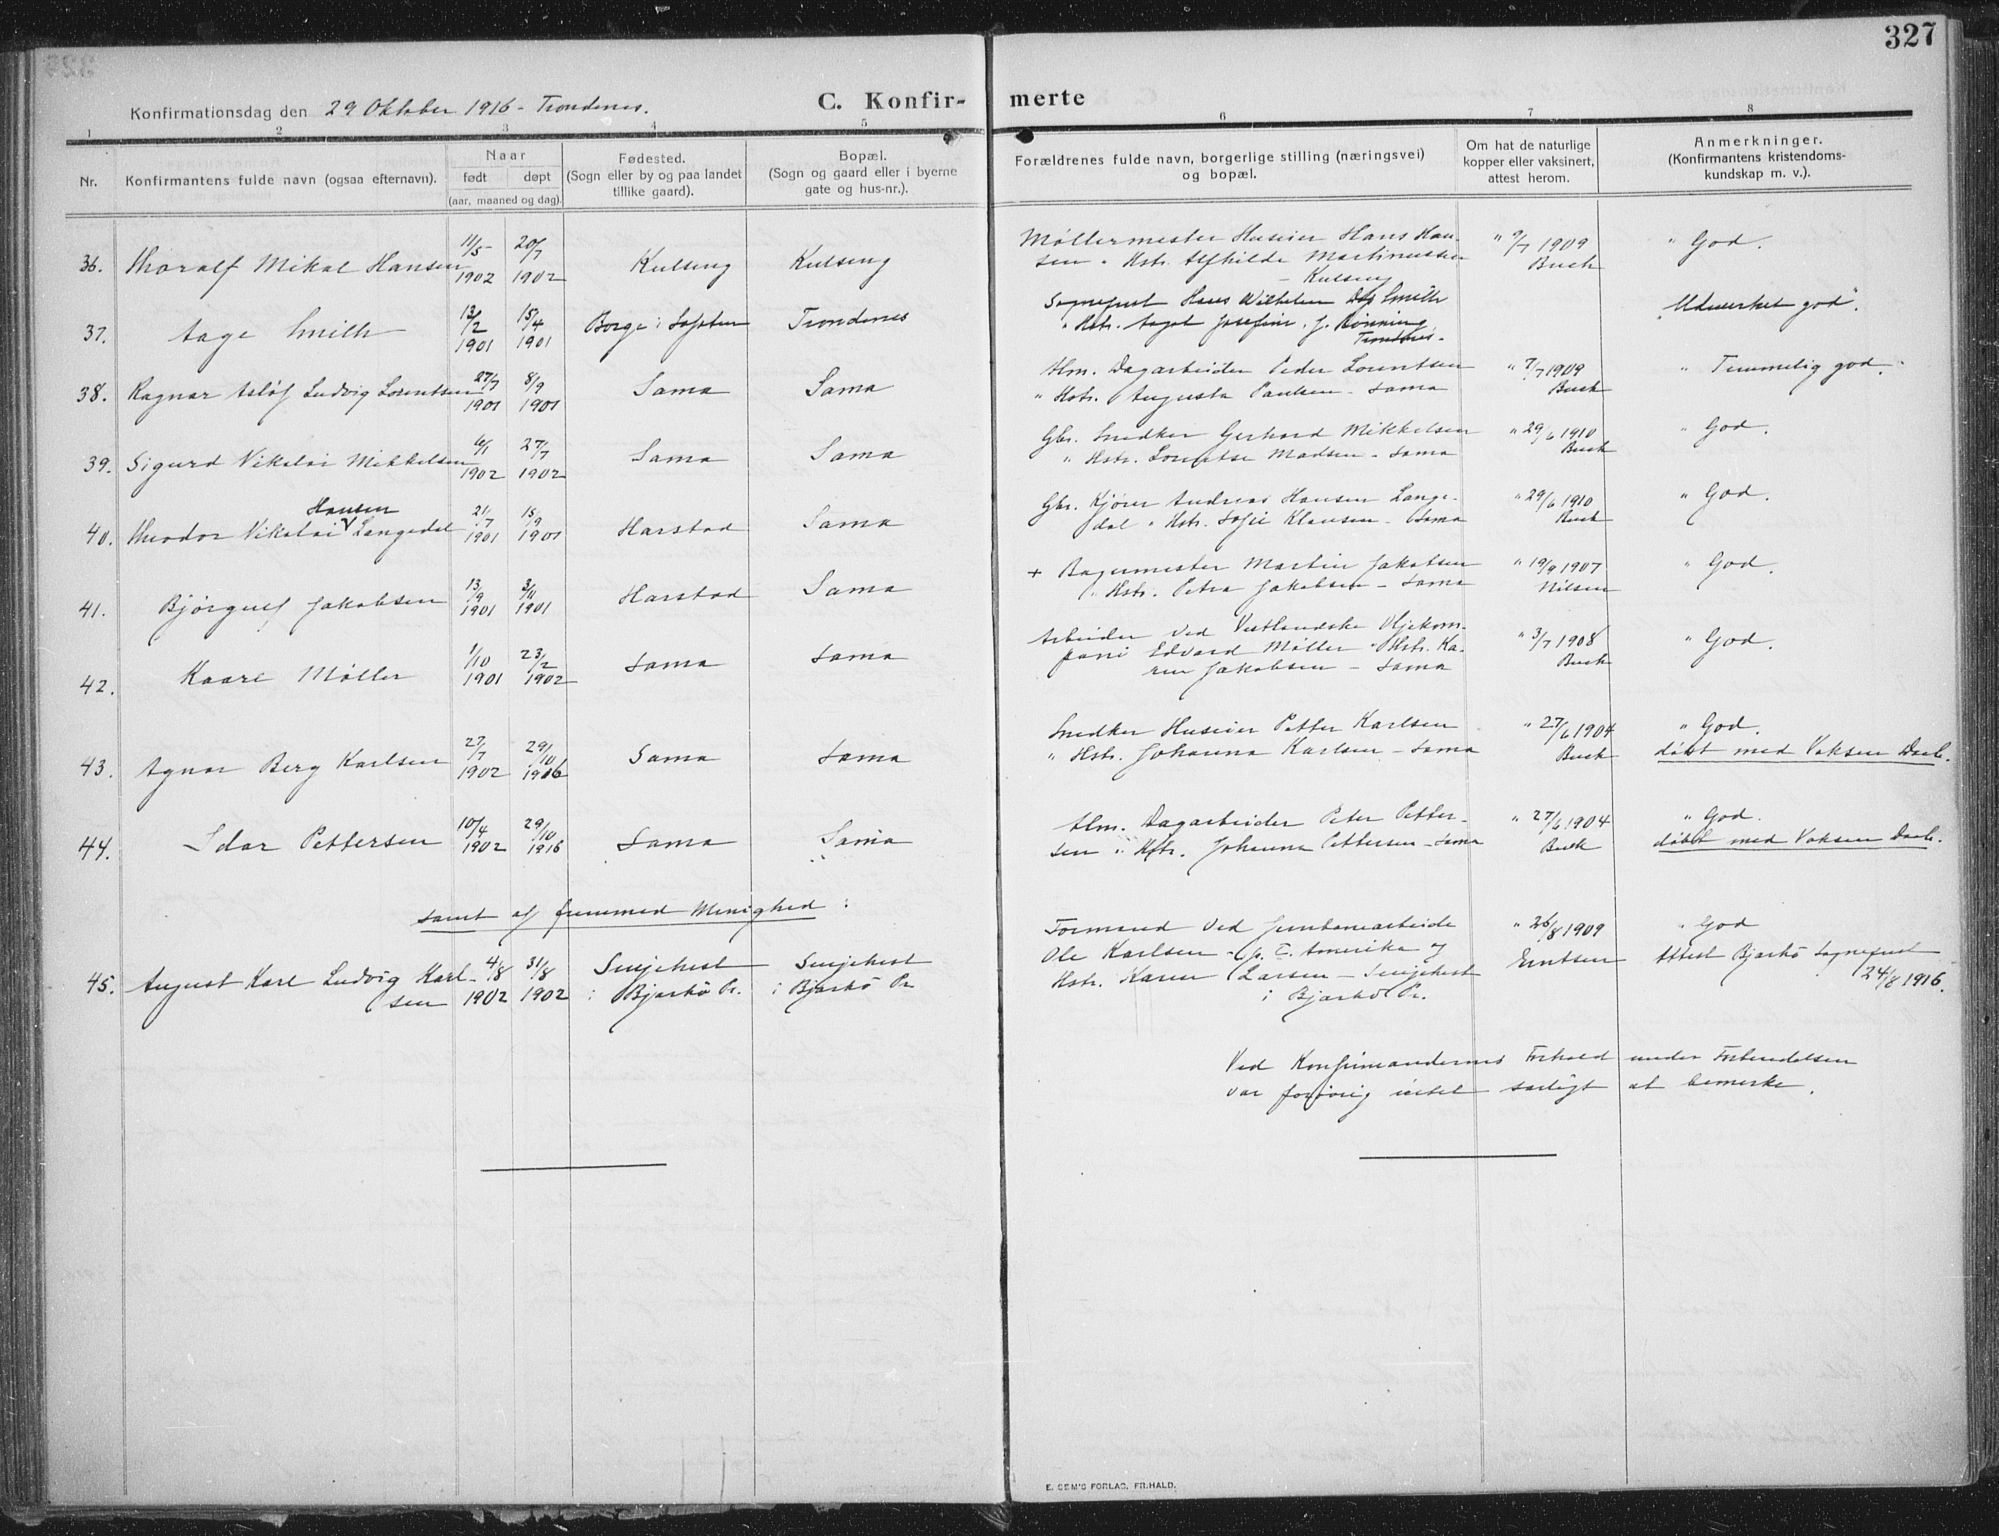 327
Konfirmationsdag den 29 Oktober 1916 - Trondenes.
C. Konfirmerte
1 2 3 4 5 6 7 8
Nr.
Konfirmantens fulde navn (ogsaa efternavn).
Naar
født døpt
(aar, maaned og dag).
Fødested.
(Sogn eller by og paa landet
tillike gaard).
Bopæl.
(Sogn og gaard eller i byerne
gate og hus-nr.).
Forældrenes fulde navn, borgerlige stilling (næringsvei)
og bopæl.
Om hat de naturlige
kopper eller vaksinert,
attest herom.
Anmerkninger.
(Konfirmantens kristendoms-
kundskap m. v.).
36. Thoralf Mikal Hansen 11/5 1902 20/7 1902 Kulseng Kulseng
Møllermester Huseier Hans Han-
sen " Hstr. Alfhilde Martinussen
- Kulseng
" 9/7 1909
Buch
" God.
37. Aage Smith 13/2 1901 15/4 1901 Borge i Lofoten Trondenes
Sognepræst Hans Wilhelm Smith
" Hstr. Aagot Josefine, f. Rønning
Trondnes -
Udmerket god".
38. Ragnar Asløf Ludvig Lorentsen 27/7 1901 8/9 1901 Sama Sama
Hm. Dagarbeider Peder Lorentsen
" Hstr. Augusta Paulsen - Sama
" 7/7 1909
Buch
" Temmelig god.
39. Sigurd Nikolai Mikkelsen 6/1 1902 27/7 1902 Sama Sama
Gbr. Snedker Gerhard Mikkelsen
" Hstr. Lorentse Madsen - Sama
" 29/6 1910
Buch
" God.
Hansen
40. Theodor Nikolai V Langedal 21/7 1901 15/9 1901 Harstad Sama
Gbr. Kjører Andreas Hansen Lange-
dal " Hstr. Sofie Klausen - Sama
" 29/6 1910
Buch
" God.
41. Bjørgulf Jakobsen 13/9 1901 3/11 1901 Harstad Sama
+ Bagermester Martin Jakobsen
" Hstr. Petra Jakobsen - Sama
" 19/9 1907
Nilsen
" God.
42. Kaare Møller 1/10 1901 23/2 1902 Sama Sama
Arbeider ved Vestlandske Oljekom-
pani Edvard Møller " Hstr. Ka-
ren Jakobsen - Sama
" 3/7 1908
Buch
" God.
43. Agnar Berg Karlsen 27/7 1902 29/10 1916 Sama Sama
Snedker Huseier Petter Karlsen
" Hstr. Johanna Karlsen - Sama
" 27/6 1904
Buch
" God.
døbt med Voksen Daab.
44. Idar Pettersen 10/4 1902 29/10 1916 Sama Sama
Hm. Dagarbeider Peter Petter-
sen " Hstr. Johanna Pettersen - Sama
" 27/6 1904
Buch
" God.
døbt med Voksen Daab.
samt af fremmed Menighed:
45. August Karl Ludvig Karl-
sen 4/8 1902 31/8 1902 Senjehest
i Bjarkö Pr. Senjehest
i Bjarkö Pr
Formand ved Jernbanearbeide
Ole Karlsen - p. T. Amerika og
Hstr. Karen Larsen - Senjehest
i Bjarkö Pr.
" 26/8 1909
Evertsen
" God
Attest Bjarkö Sognepræst
24/8 1916.
Ved Konfirmandernes Forhold under Forberedelsen
var forøvrig intet særligt at bemerke.
E. SEM'S FORLAG, FR.HALD.